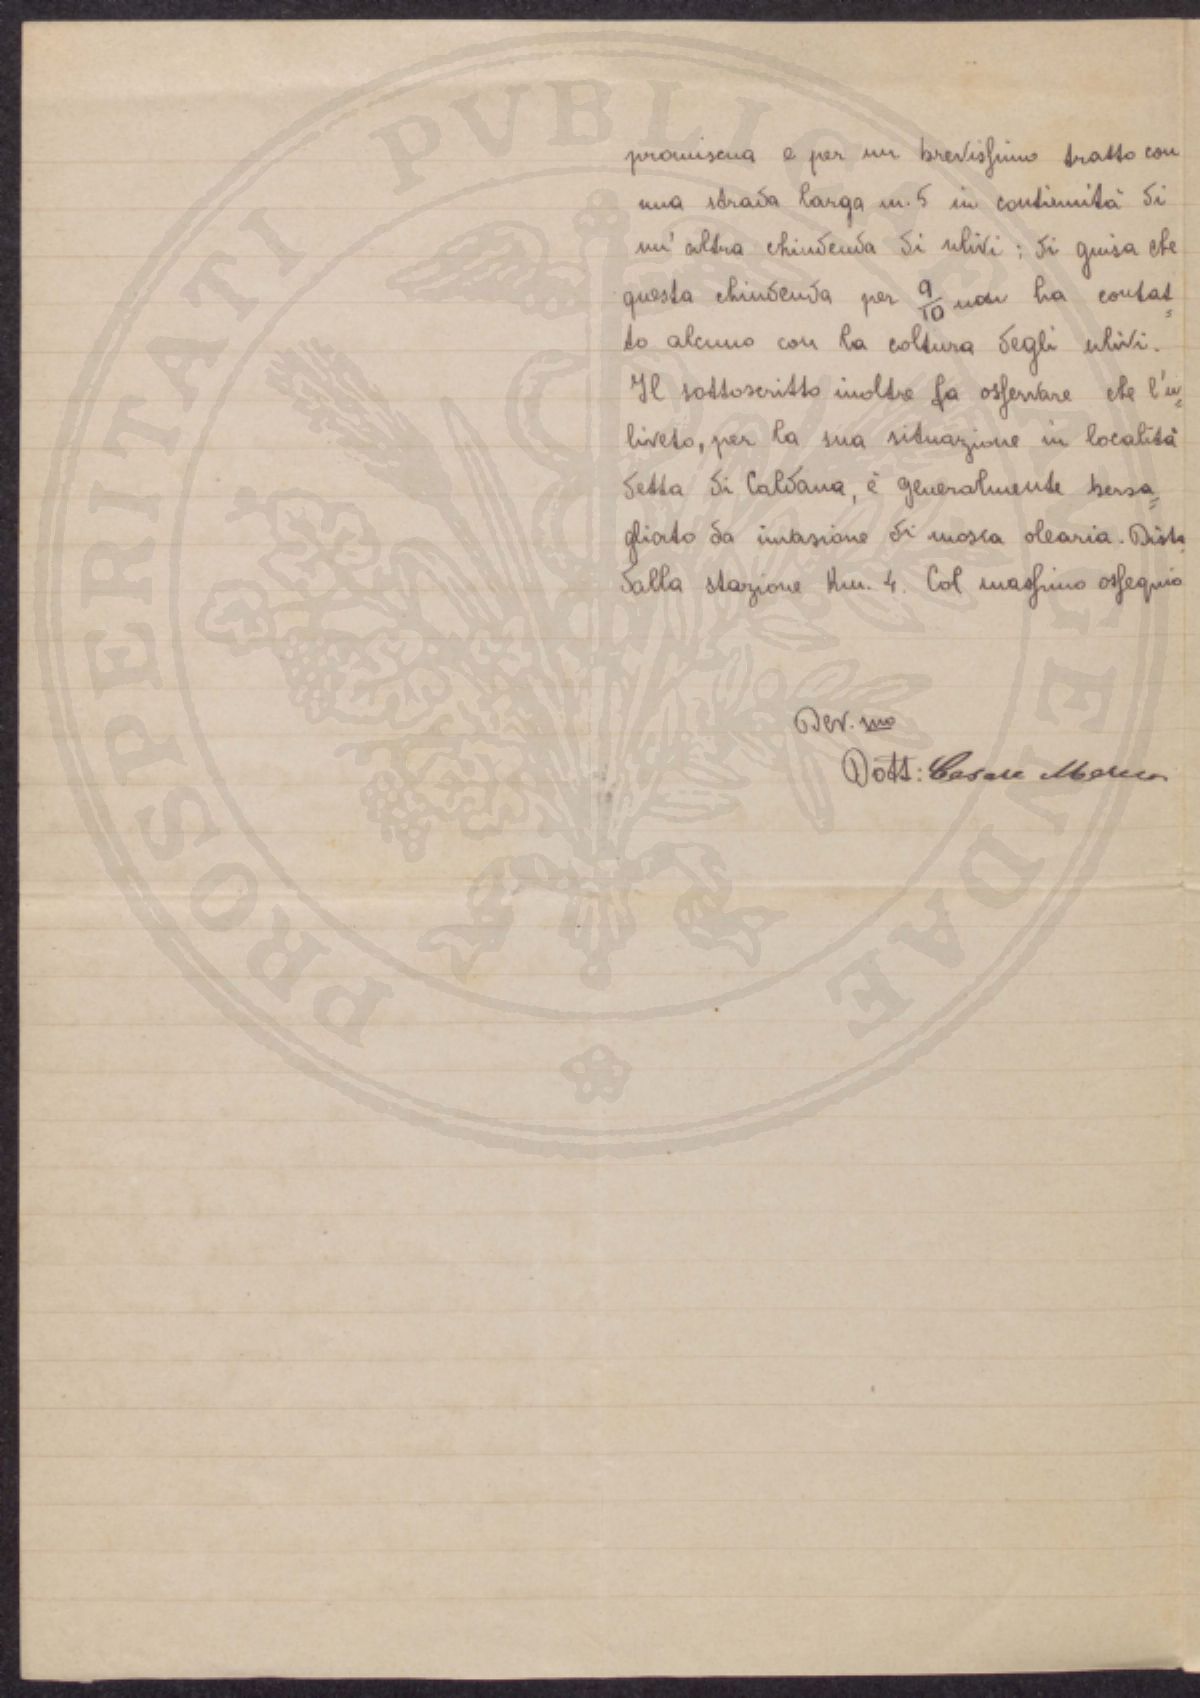 promiscua e per un brevissimo tratto con
una strada larga m. 5 in contiennità di
un' altra chiudenda di ulivi: di guisa che
questa chiudenda per 9/10 non ha contat=
to alcuno con la coltura degli ulivi.
Il sottoscritto inoltre fa osservare che l'u=
liveto, per la sua situazione in località
detta di Caldana, è generalmente bersa=
gliato da invasione di mosca olearia. Dista
dalla stazione Km. 4. Col massimo ossequio
Dev.mo
Dott: Cesare
PROSPERITATI PVBLICAE AVGENDAE